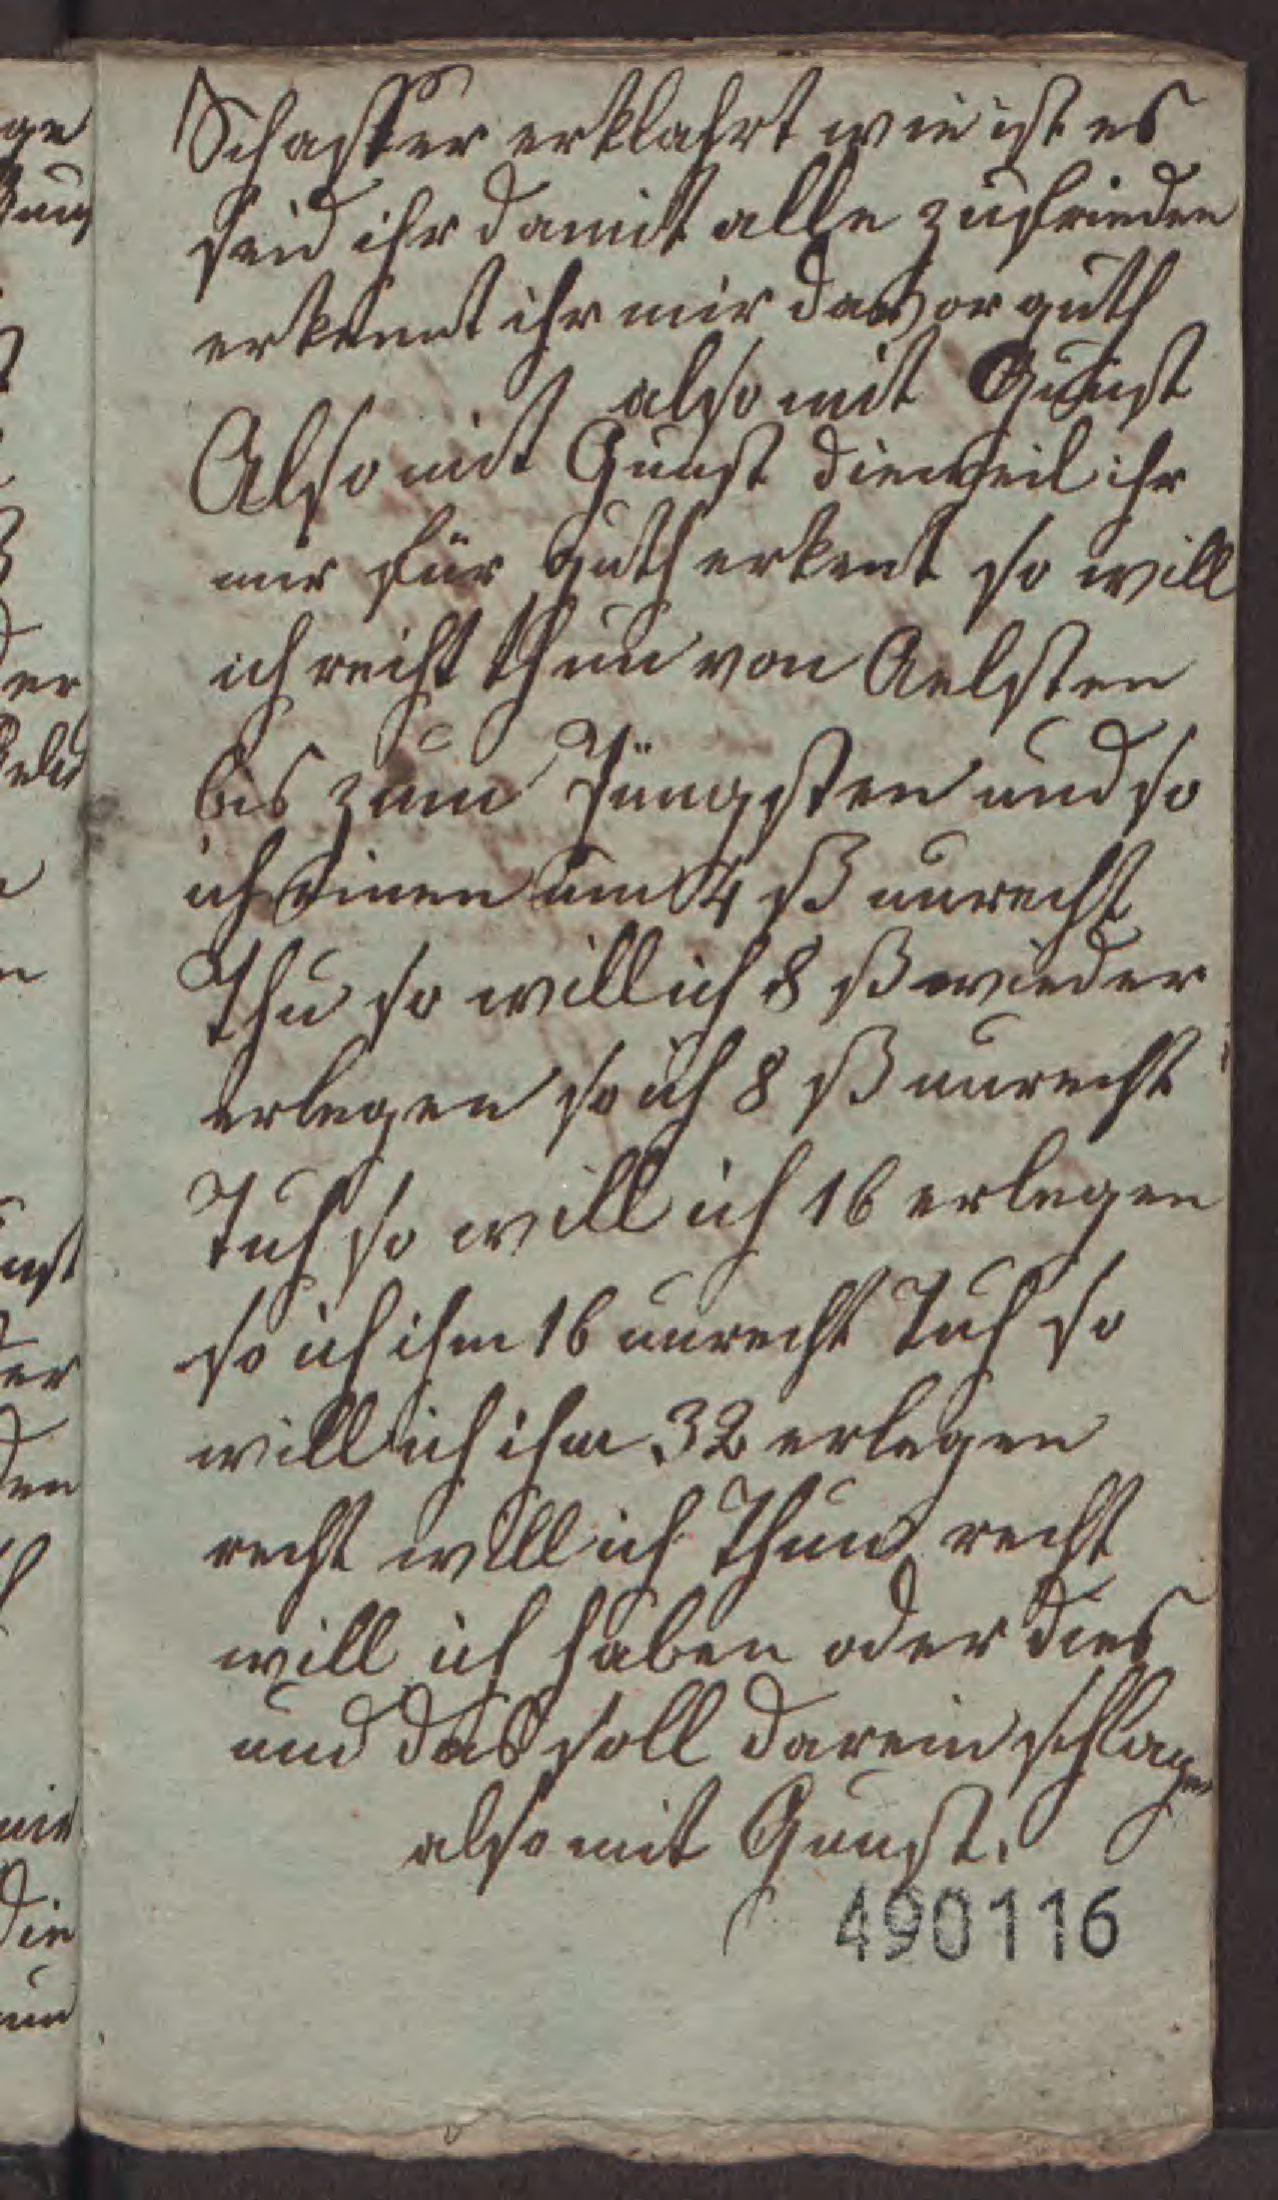 Schaffer erklahrt wie ist es
seid ihr damit alle zufrieden
erkennt ihr mir davor guth
also mit Gunst
Also mit Gunst dieweil ihr
mir für guth erkent so will
ich recht thun von Aelsten
bis zum Jüngsten und so
ich einen um 4 ß unrecht
Thu so will ich 8 ß wieder
erlegen so ich 8 ß unrecht
Tuh so will ich 16 erlegen
so ich ihm 16 unrecht Tuh so
will ich ihm 32 erlegen
recht will ich Thun recht
will ich haben oder dies
und das soll darein schlagen
also mit Gunst.
490116